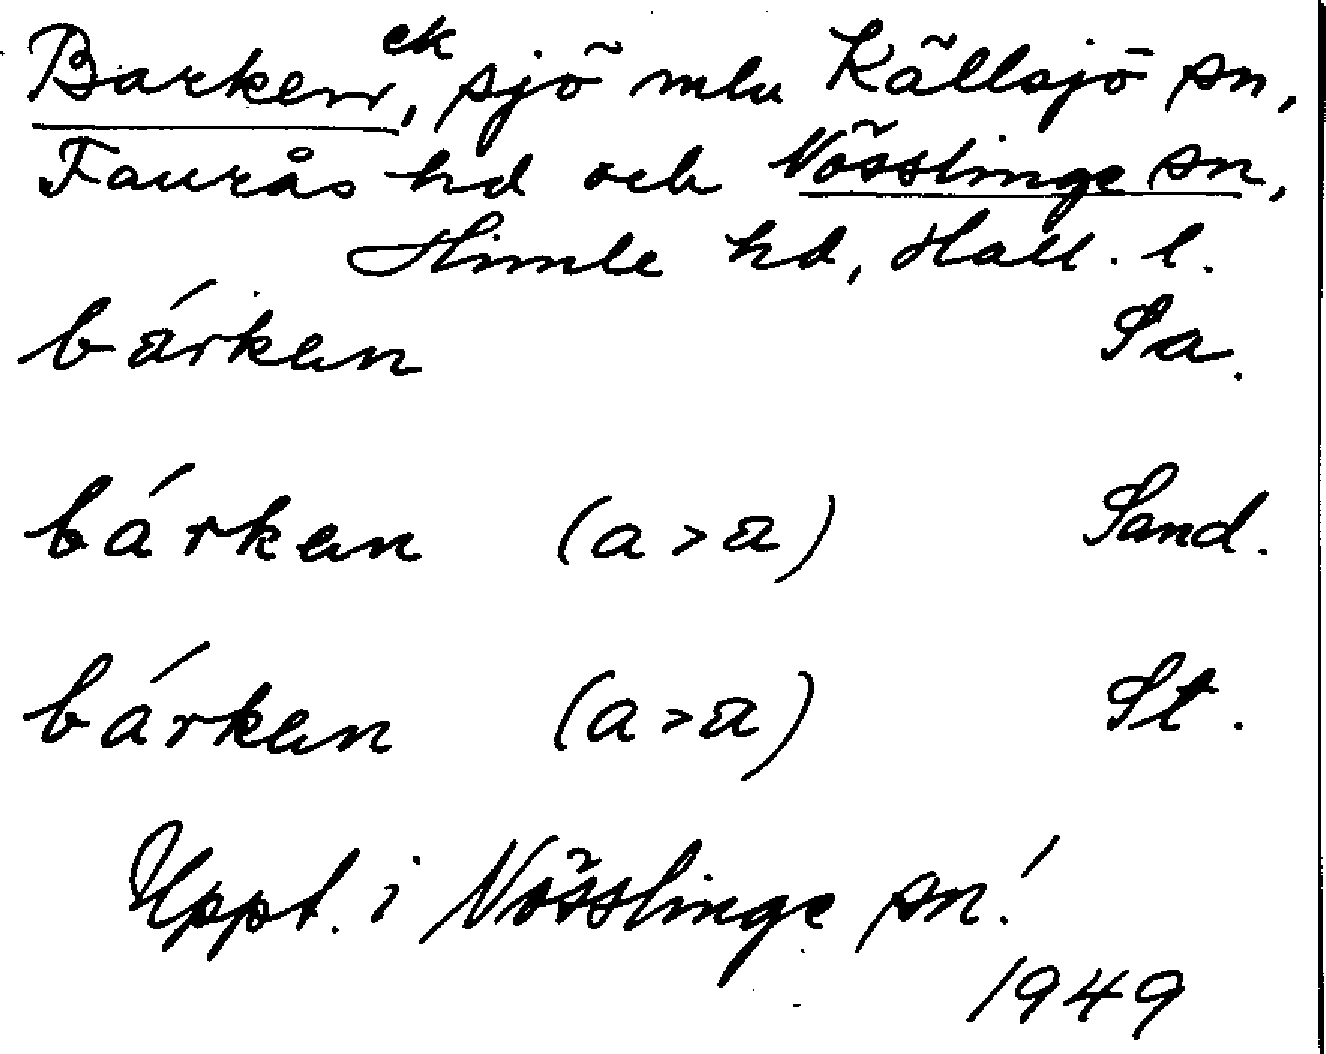 Barken, ek sjö mlu Källsjö sn,
Faurås hd och Nösslinge sn,
Himle hd, Hall. l.
bárkan Sa.
bárkan (a > a) Sand.
bárkan (a > a) St.
Uppt. i Nösslinge sn!
1949